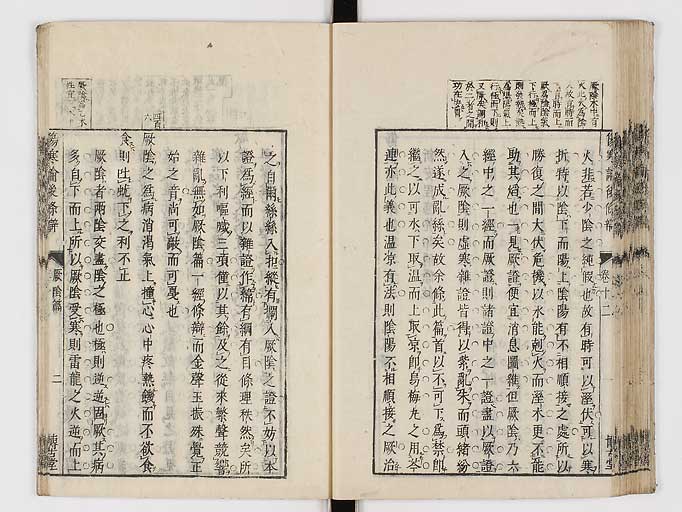 火非若少陰之純假也故有時可以溼伏可以寒
折特以陰下而陽上陰陽有不相順接之處所以
勝復之間大伏危機以水能剋火而溼木更不能
助其焰也一見厥證便宜消息圖維但厥陰乃六
經中之一經而厥證則諸證中之一證盡以厥證
入之厥陰則虛寒雜證皆得以紫亂朱而頭緒紛
然遂成亂絲矣故余條此篇首以不可下為禁即
繼之以可水下取溫而上取涼即烏梅丸之用苓
連亦此義也溫涼有法則陰陽不相順接之厥治
傷寒論後條辨
卷十二
之自爾絲絲入扣縱有闌入厥陰之證不妨以本
證為經而以雜證作緯有綱有目條理秩然矣所
以下利嘔噦三項僅以其餘及之從來繁聲競響
雜亂無如厥陰篇一經條辯而金聲玉振殊覺正
始之音尚可敲而可戛也
厥陰之為病消渴氣上撞心心中疼熱饑而不欲食
食則吐蚘下之利不止
厥陰者兩陰交盡陰之極也極則逆逆固厥其病
多自下而上所以厥陰受寒則雷龍之火逆而上
傷寒論後條辨
厥陰篇
二